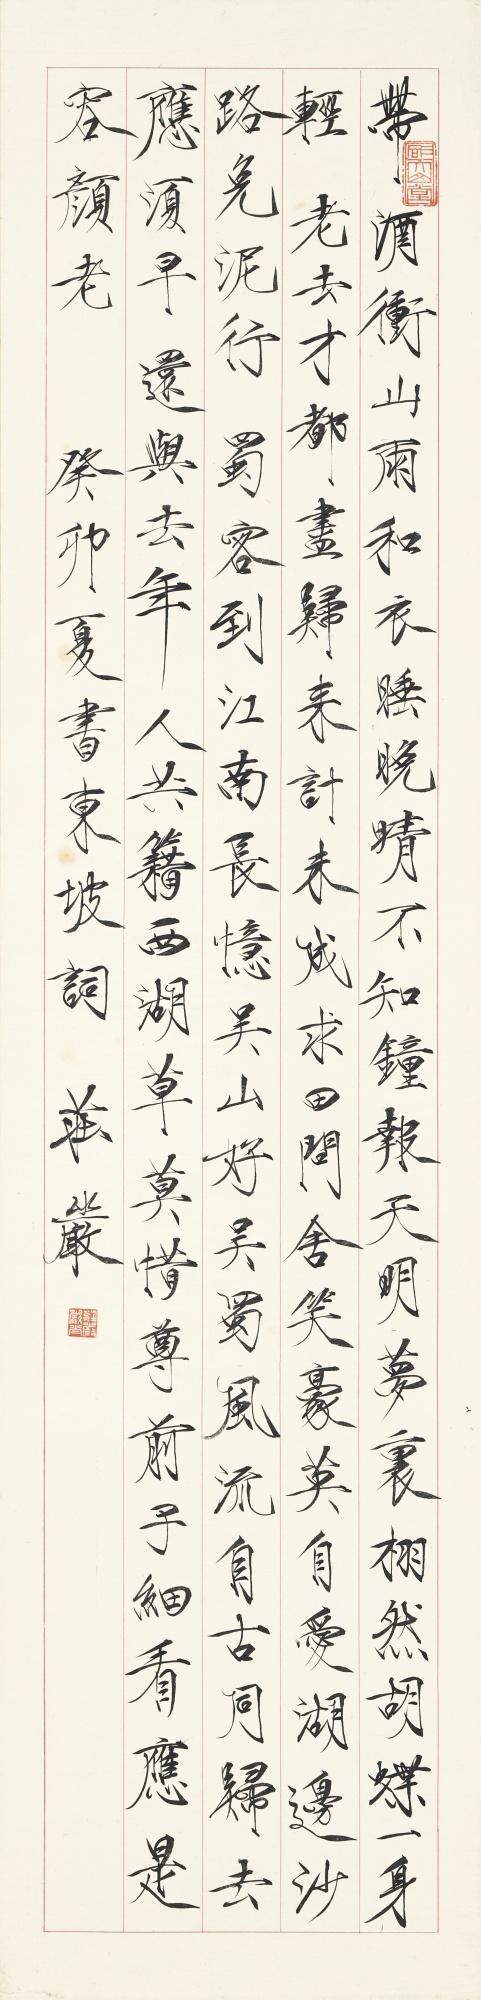 帶酒衝山雨和衣睡晚晴不知鐘報天明夢裏栩然胡蝶一身
輕 老去才都盡歸來計未成求田問舍笑豪英自愛湖邊沙
路免泥行 蜀客到江南長憶吳山好吳蜀風流自古同歸去
應須早 還與去年人共籍西湖草莫惜尊前子細看應是
容顏老 癸卯夏書東坡詞 莊嚴